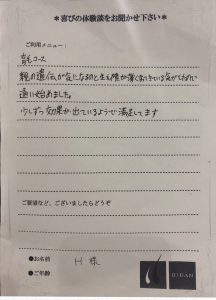 ＊喜びの体験談をお聞かせ下さい＊
ご利用メニュー：
育毛コース
親の遺伝が気になるのと生え際が薄くなってきている気がしたので
通い始めました。
少しずつ効果が出ているようで満足してます
ご要望など、ございましたらどうぞ
●お名前 H 様
●ご年齢
BIGAN